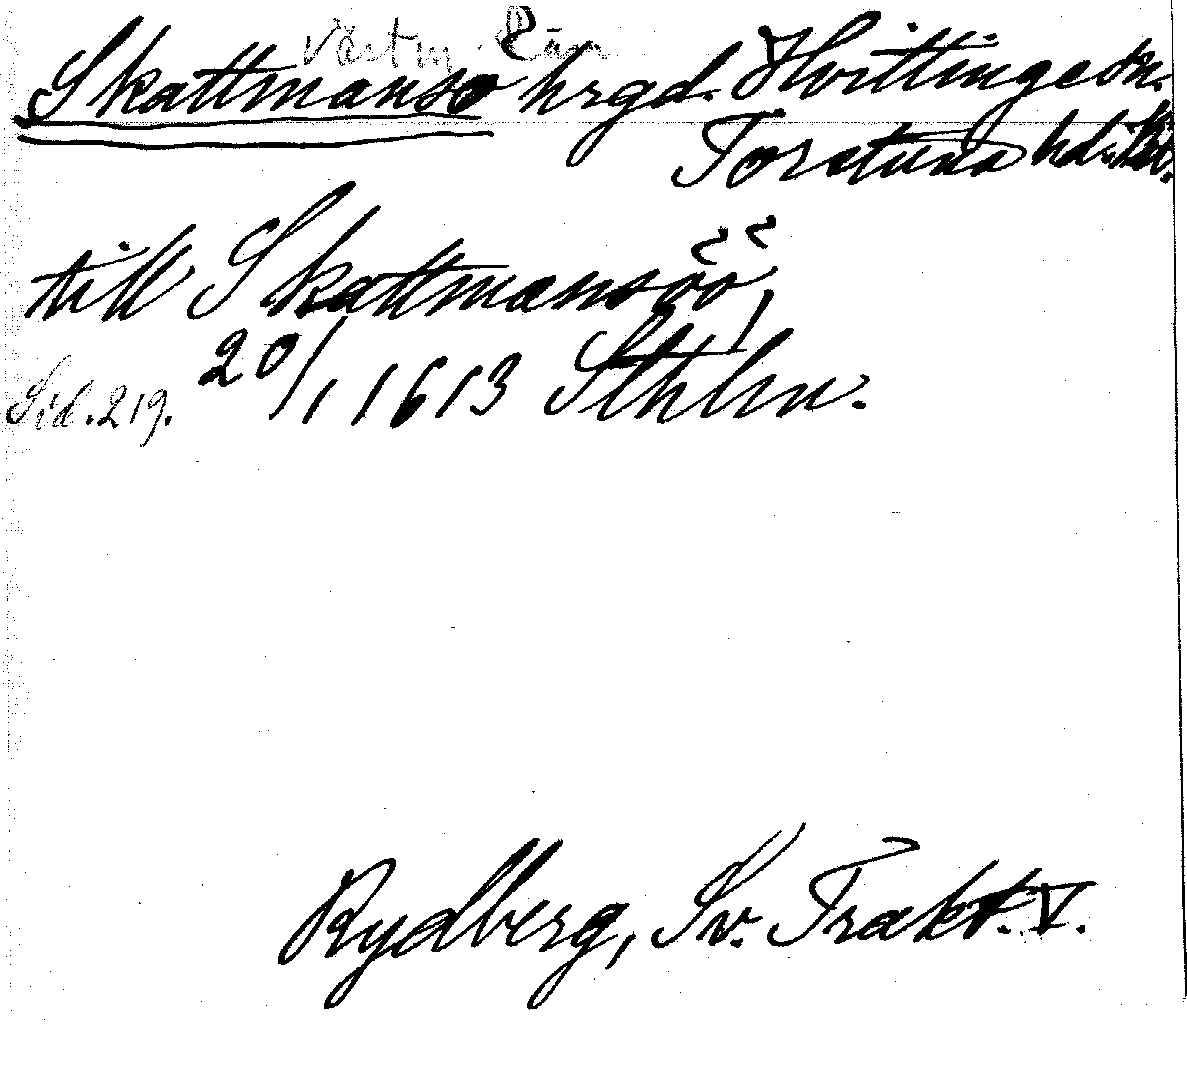 Västm. Län
Skattmansö hrgd. Hvittinge sn.
Torstuna hd.
till Skattmansöö,
Sid. 219. 20/1 1613 Sthlm.
Rydberg, Sv. Trakt. V.